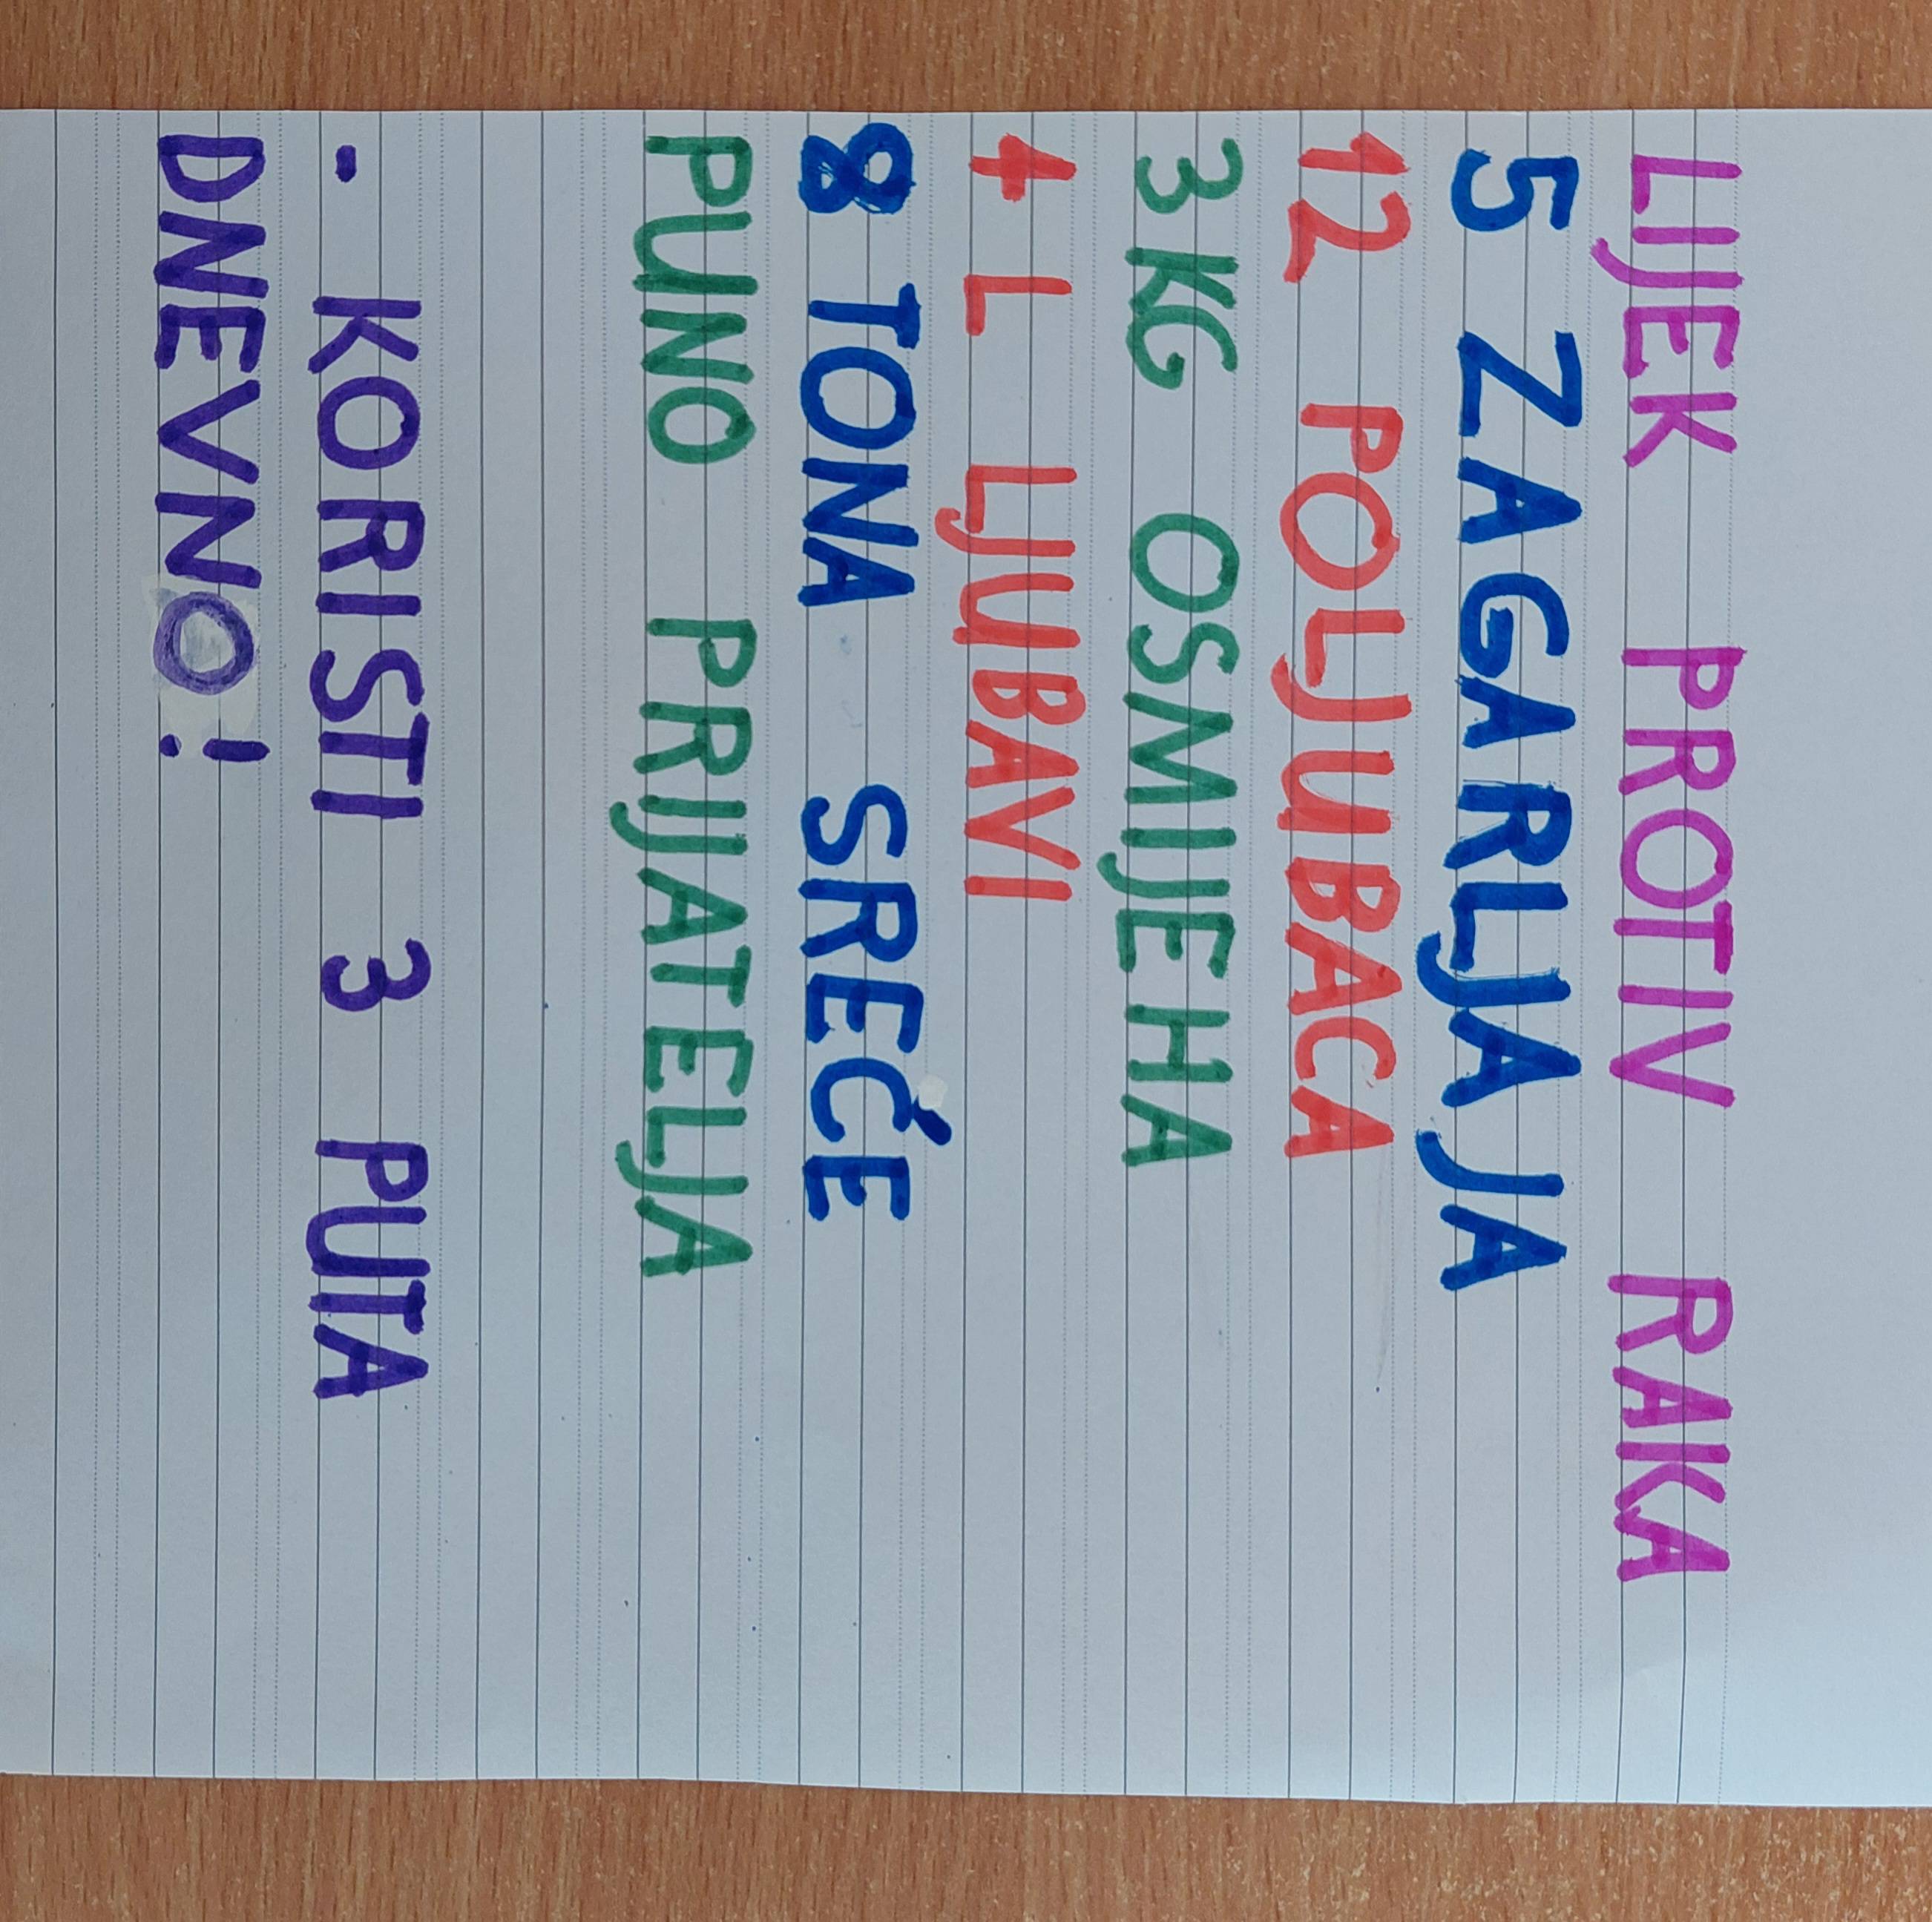 LIJEK PROTIV RAKA
5 ZAGARLJAJA
12 POLJUBACA
3 KG OSMIJEHA
4 L LJUBAVI
8 TONA SREĆE
PUNO PRIJATELJA
- KORISTI 3 PUTA
DNEVNO!